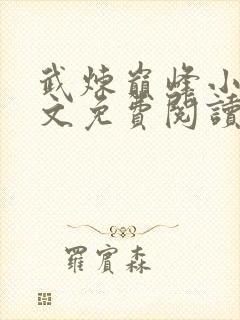 武煉巔峰小
文免費閱讀
羅賓森